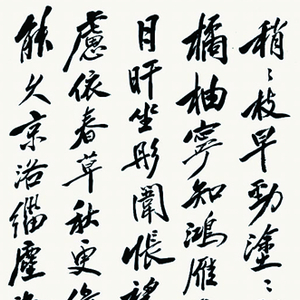 稍〻枝早勁塗〻
橘柚寧知鴻雁
日旰坐彤闈悵望
慮依春草秋更
能久京洛緇塵